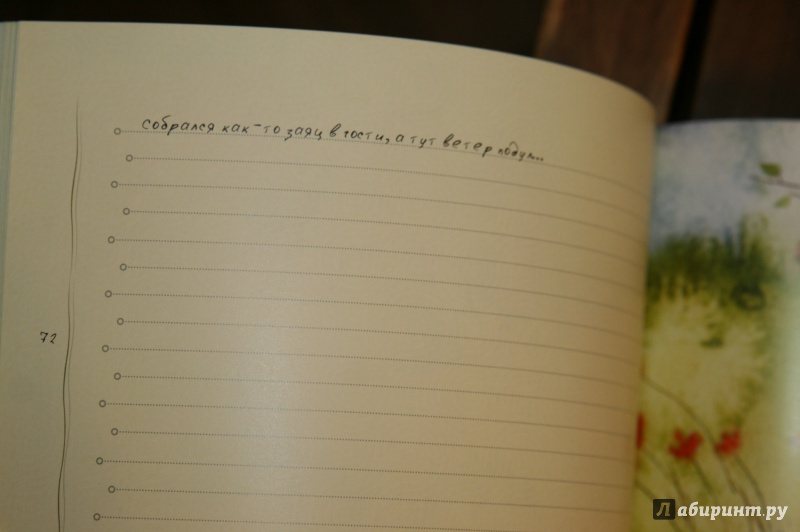 собрался как-то заяц в гости, а тут ветер подул...
72
Лабиринт.ру